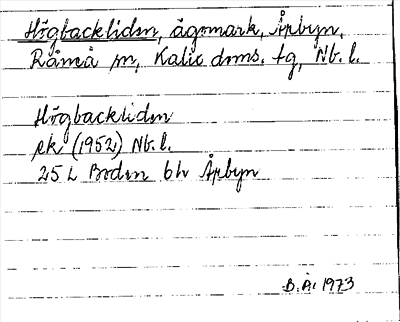 Högbackliden, ägomark, Årbyn,
Råneå sn, Kalix doms. tg, Nb. l.
Högbackliden
ek (1952) Nb. l.
25 L Boden 6h Årbyn
B. Å. 1973